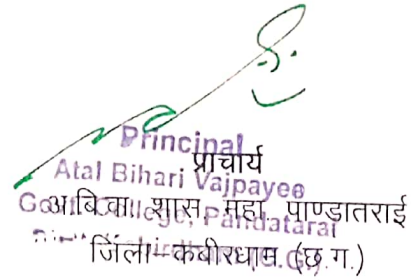 Principal
प्राचार्य
Atal Bihari Vajpayee
Govt. College, Pandatarai
अ.बि.वा. शास. महा. पाण्डातराई
जिला–कबीरधाम (छ.ग.)